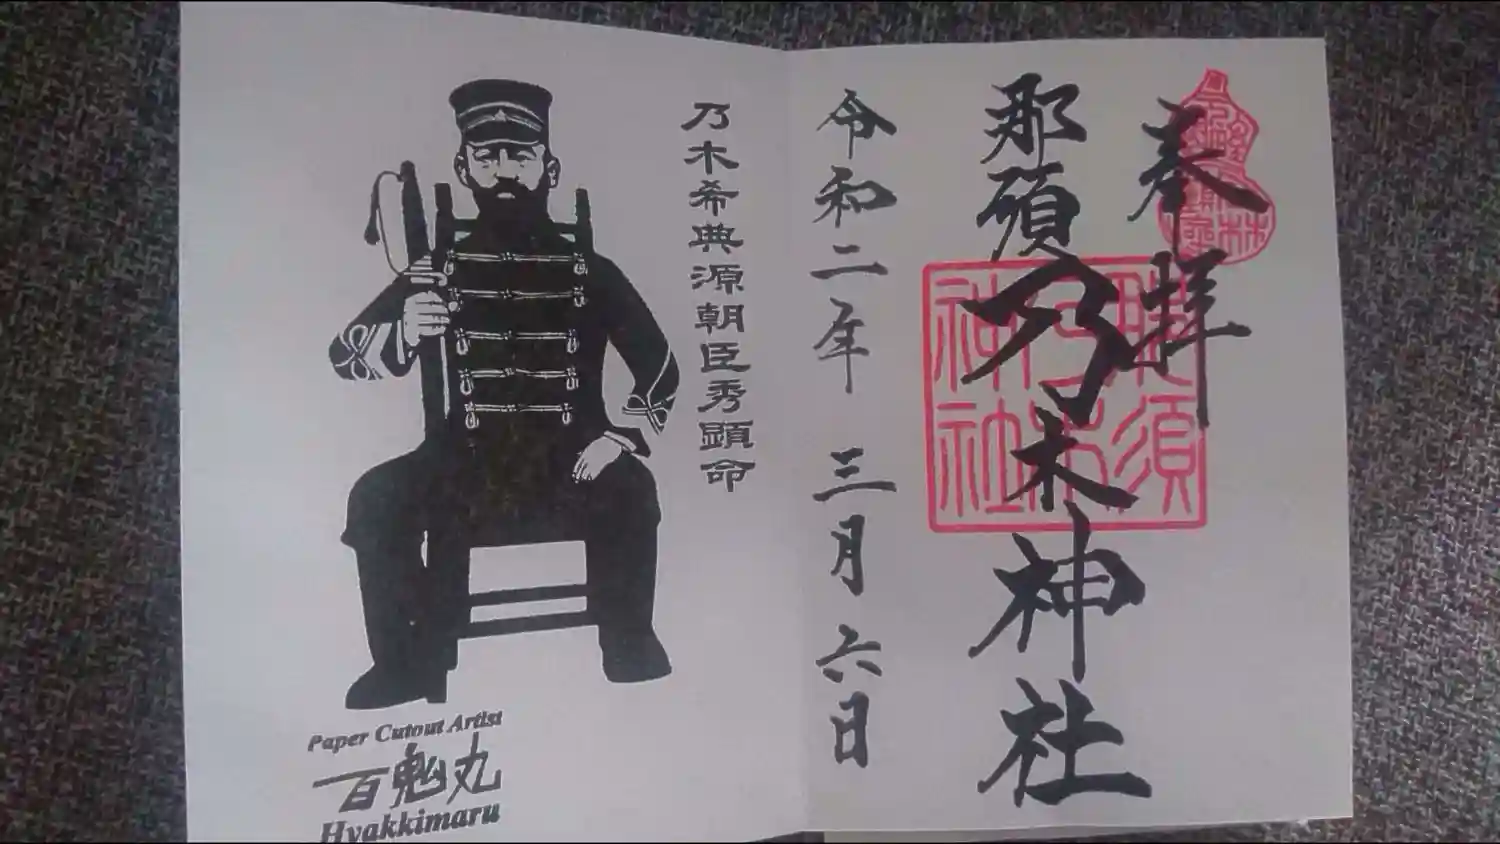 奉拝
那須乃木神社
那須乃木神社
令和二年 三月 六日
乃木希典源朝臣秀顕命
Paper Cutout Artist
百鬼丸
Hyakkimaru